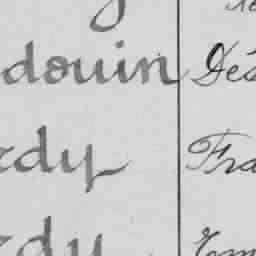 douin Dés
rdy Fra
rdy